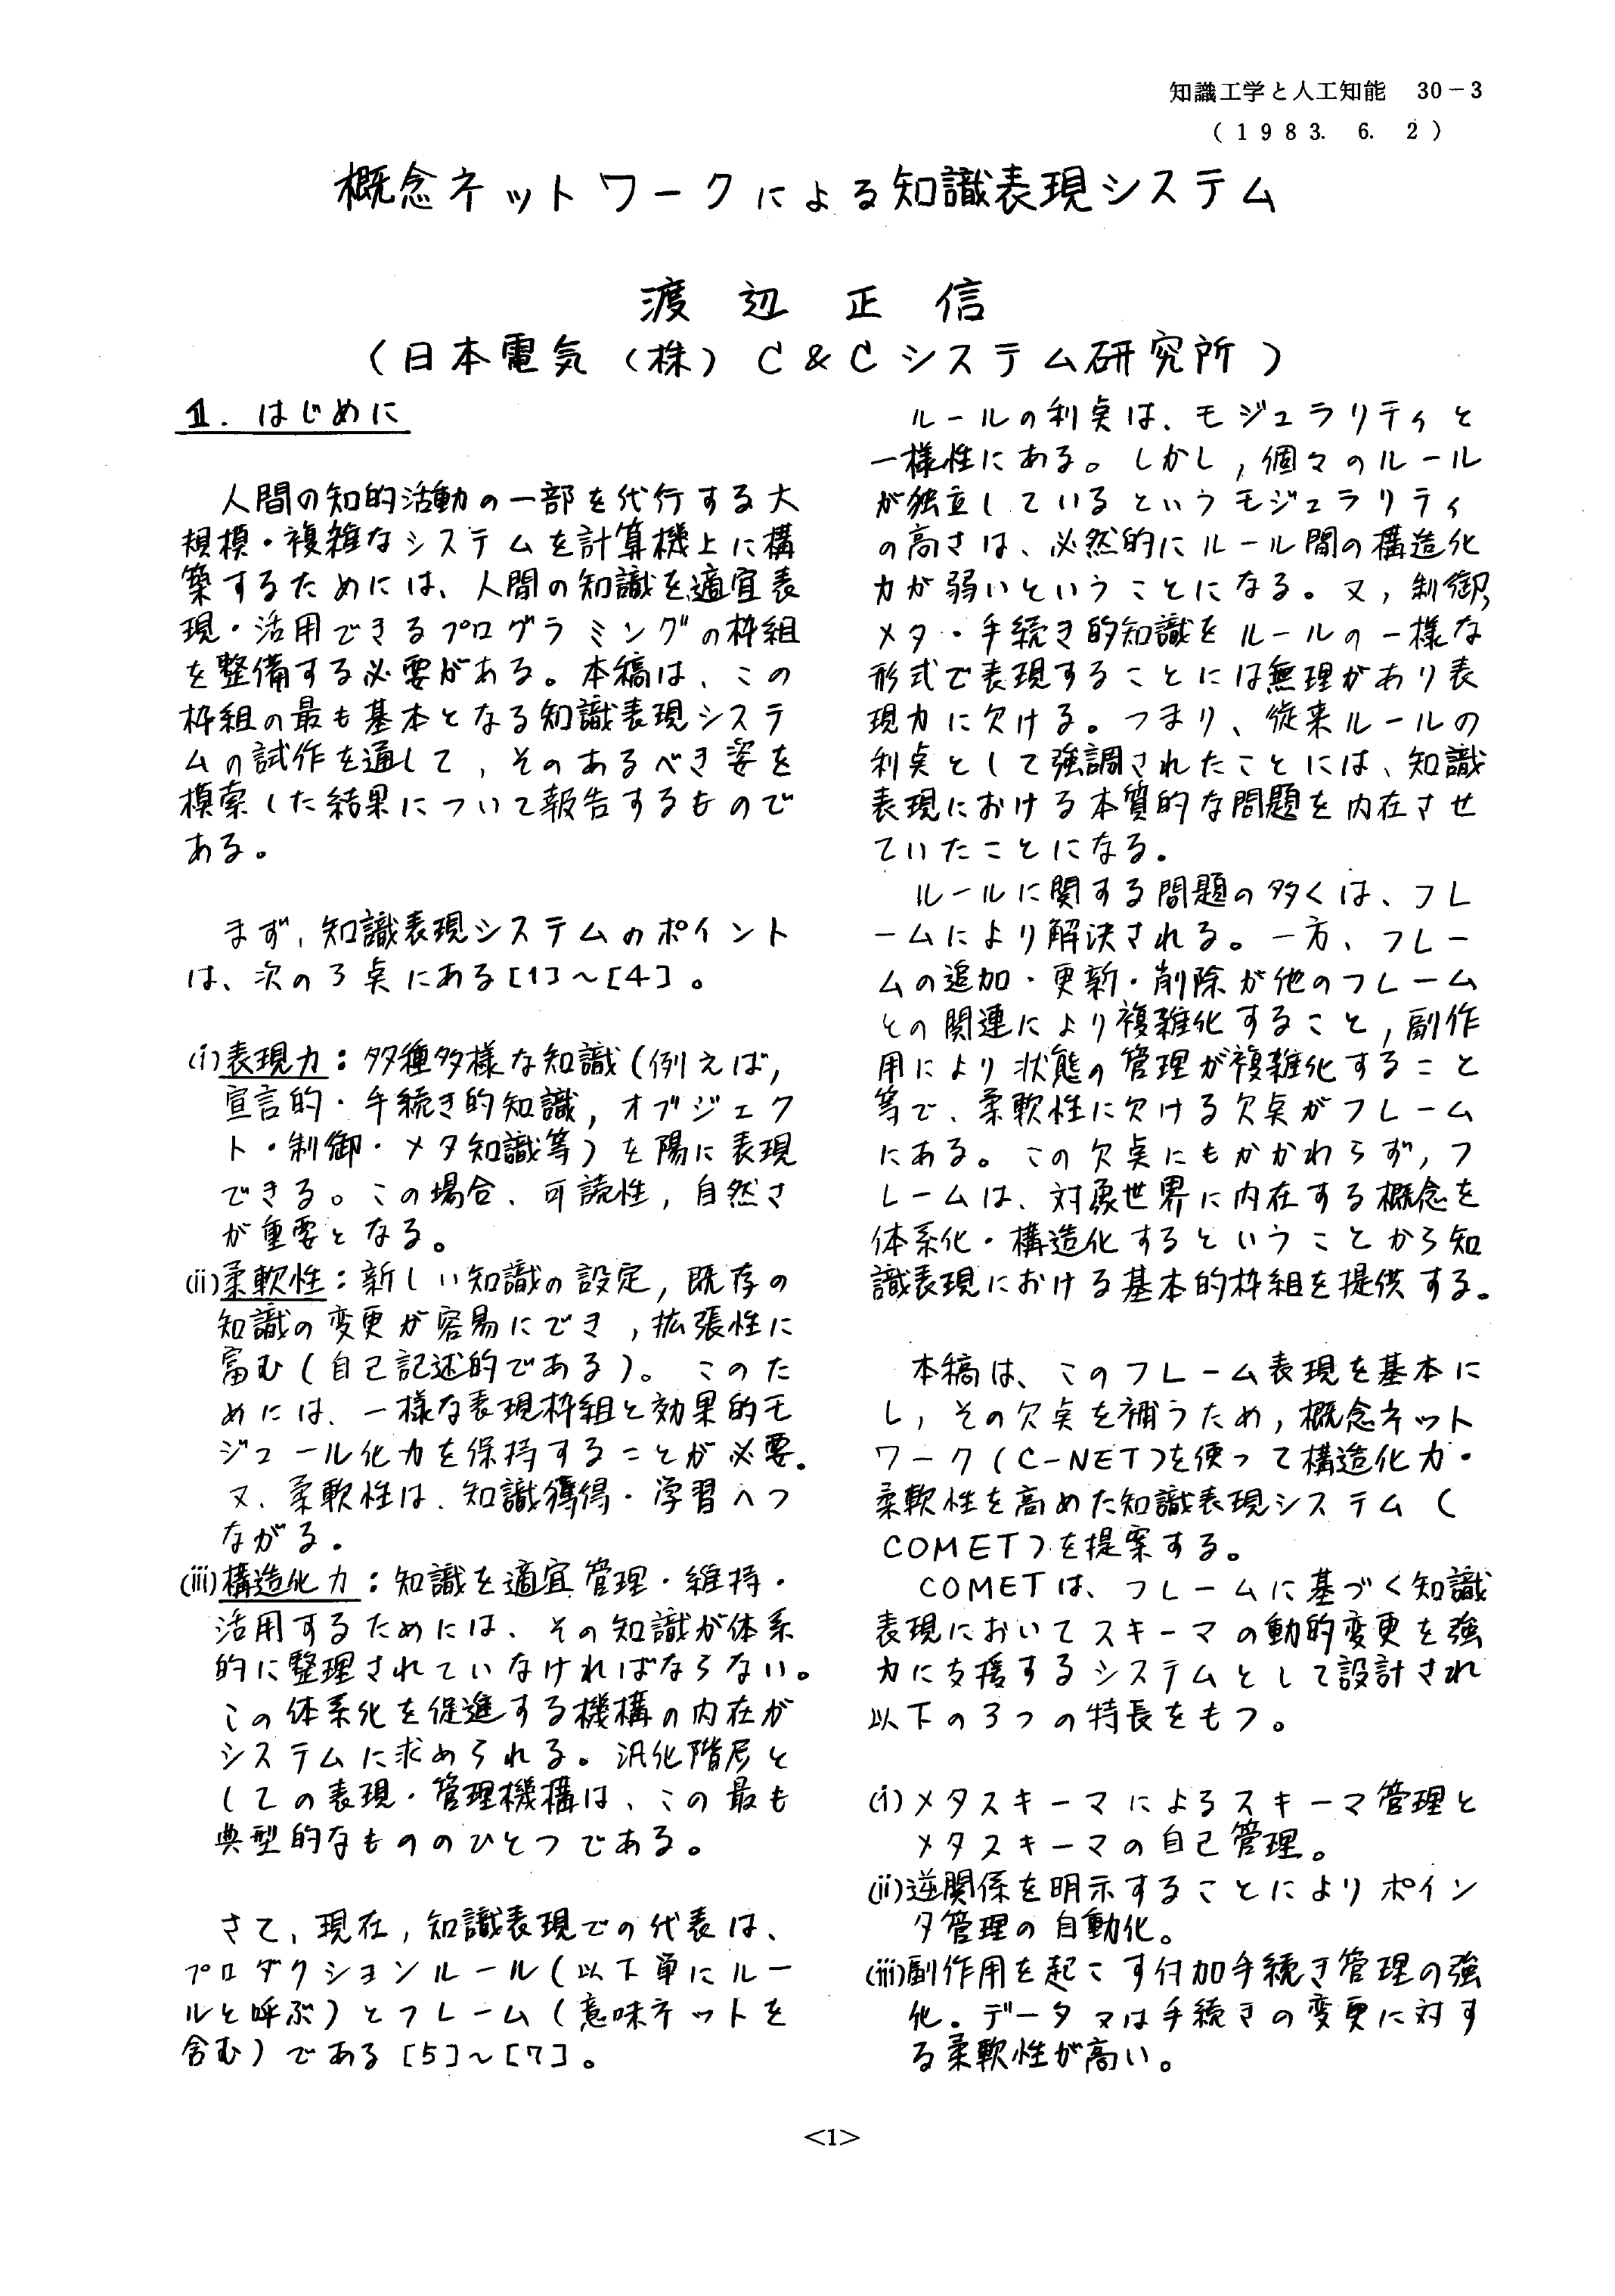 知識工学と人工知能 30-3
(1983. 6. 2)
概念ネットワークによる知識表現システム
渡辺正信
(日本電気(株)C&Cシステム研究所)
1. はじめに
人間の知的活動の一部を代行する大
規模・複雑なシステムを計算機上に構
築するためには、人間の知識を適宜表
現・活用できるプログラミングの枠組
を整備する必要がある。本稿は、この
枠組の最も基本となる知識表現システ
ムの試作を通して,そのあるべき姿を
模索した結果について報告するもので
ある。
まず,知識表現システムのポイント
は、次の3点にある[1]~[4]。
(i)表現力:多種多様な知識(例えば,
宣言的・手続き的知識,オブジェク
ト・制御・メタ知識等)を陽に表現
できる。この場合、可読性,自然さ
が重要となる。
(ii)柔軟性:新しい知識の設定,既存の
知識の変更が容易にでき,拡張性に
富む(自己記述的である)。このた
めには、一様な表現枠組と効果的モ
ジュール化力を保持することが必要。
又、柔軟性は、知識獲得・学習へつ
ながる。
(iii)構造化力:知識を適宜管理・維持・
活用するためには、その知識が体系
的に整理されていなければならない。
この体系化を促進する機構の内在が
システムに求められる。汎化階層と
しての表現・管理機構は、この最も
典型的なもののひとつである。
さて,現在,知識表現での代表は、
プロダクションルール(以下単にルー
ルと呼ぶ)とフレーム(意味ネットを
含む)である[5]~[7]。
ルールの利点は、モジュラリティと
一様性にある。しかし,個々のルール
が独立しているというモジュラリティ
の高さは、必然的にルール間の構造化
力が弱いということになる。又,制御,
メタ・手続き的知識をルールの一様な
形式で表現することには無理があり表
現力に欠ける。つまり、従来ルールの
利点として強調されたことには、知識
表現における本質的な問題を内在させ
ていたことになる。
ルールに関する問題の多くは、フレ
ームにより解決される。一方、フレー
ムの追加・更新・削除が他のフレーム
との関連により複雑化すること,副作
用により状態の管理が複雑化すること
等で、柔軟性に欠ける欠点がフレーム
にある。この欠点にもかかわらず,フ
レームは、対象世界に内在する概念を
体系化・構造化するということから知
識表現における基本的枠組を提供する。
本稿は、このフレーム表現を基本に
し,その欠点を補うため,概念ネット
ワーク(C-NET)を使って構造化力・
柔軟性を高めた知識表現システム(
COMET)を提案する。
COMETは、フレームに基づく知識
表現においてスキーマの動的変更を強
力に支援するシステムとして設計され
以下の3つの特長をもつ。
(i)メタスキーマによるスキーマ管理と
メタスキーマの自己管理。
(ii)逆関係を明示することによりポイン
タ管理の自動化。
(iii)副作用を起こす付加手続き管理の強
化。データ又は手続きの変更に対す
る柔軟性が高い。
<1>